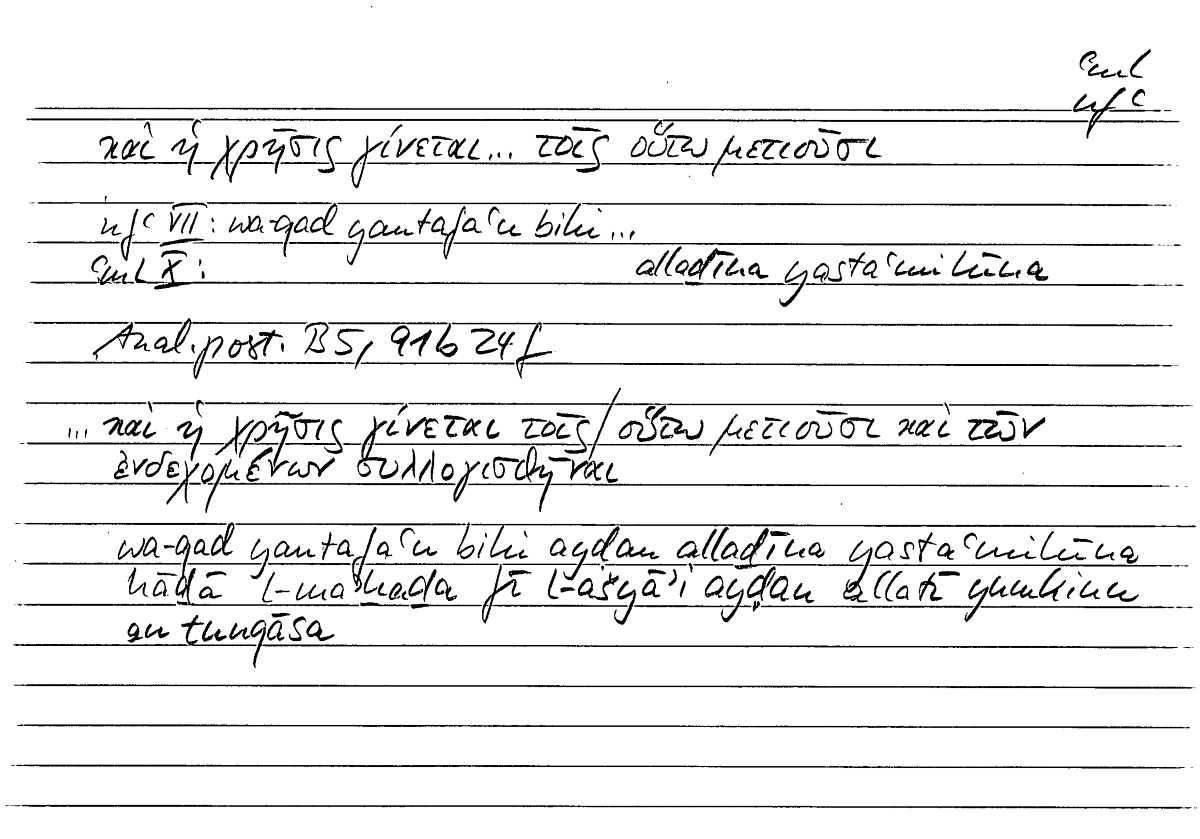 ʿml
nfʿ
καὶ ἡ χρῆσις γίνεται... τοῖς οὕτω μετιοῦσι
nfʿ VII: wa-qad yantafaʿu bihi...
ʿml X: alladīna yastaʿmilūna
Anal. post. B5, 91b 24f
... καὶ ἡ χρῆσις γίνεται τοῖς/οὕτω μετιοῦσι καὶ τῶν
ἐνδεχομένων συλλογισθῆναι
wa-qad yantafaʿu bihi ayḍan allaḏīna yastaʿmilūna
hāḏā l-maʾḫaḏa fī l-ašyāʾi ayḍan allatī yumkinu
an tuqāsa